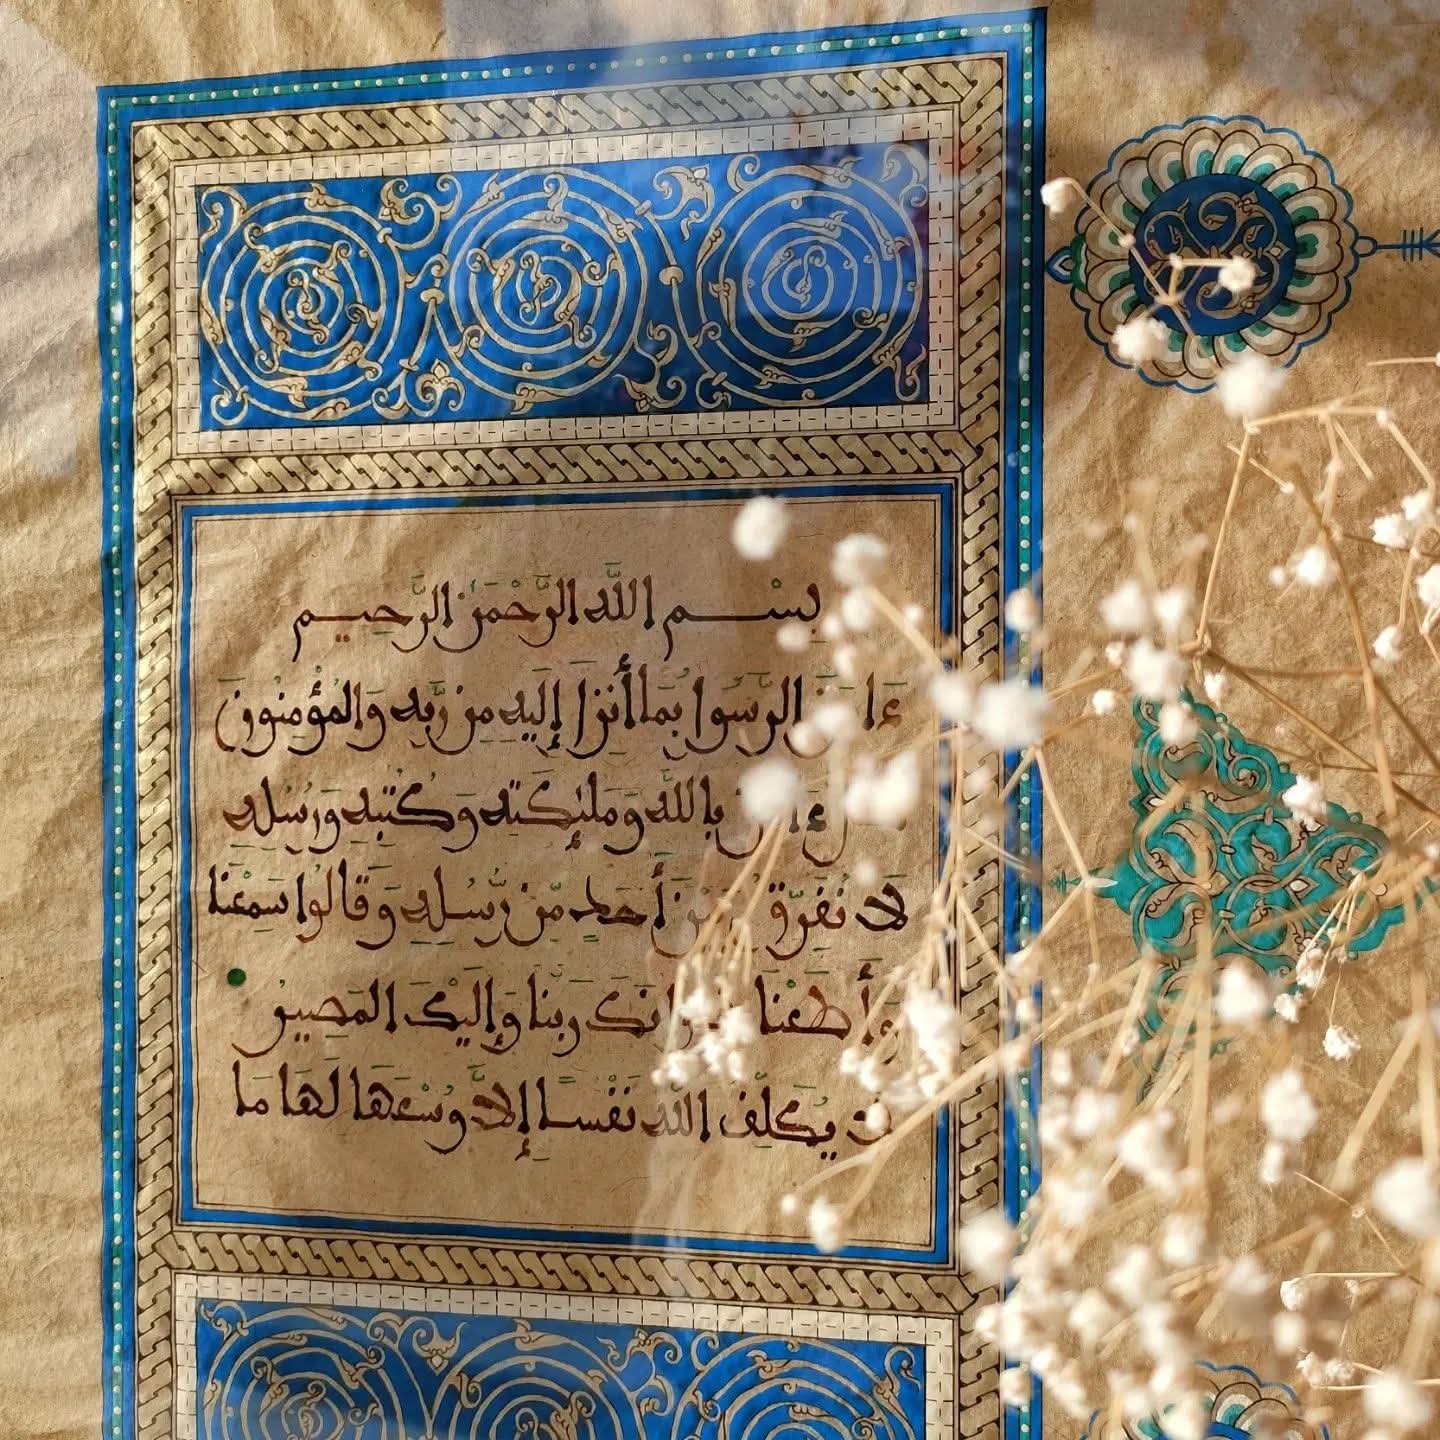 بِسْمِ اللَّهِ الرَّحْمَٰنِ الرَّحِيمِ
الرَّسُولُ بِمَا أُنزِلَ إِلَيْهِ مِن رَّبِّهِ وَالْمُؤْمِنُونَ
بِاللَّهِ وَمَلَٰئِكَتِهِ وَكُتُبِهِ وَرُسُلِهِ
لَا نُفَرِّقُ بَيْنَ أَحَدٍ مِّن رُّسُلِهِ وَقَالُوا سَمِعْنَا
وَأَطَعْنَا غُفْرَانَكَ رَبَّنَا وَإِلَيْكَ الْمَصِيرُ
يُكَلِّفُ اللَّهُ نَفْسًا إِلَّا وُسْعَهَا لَهَا مَا